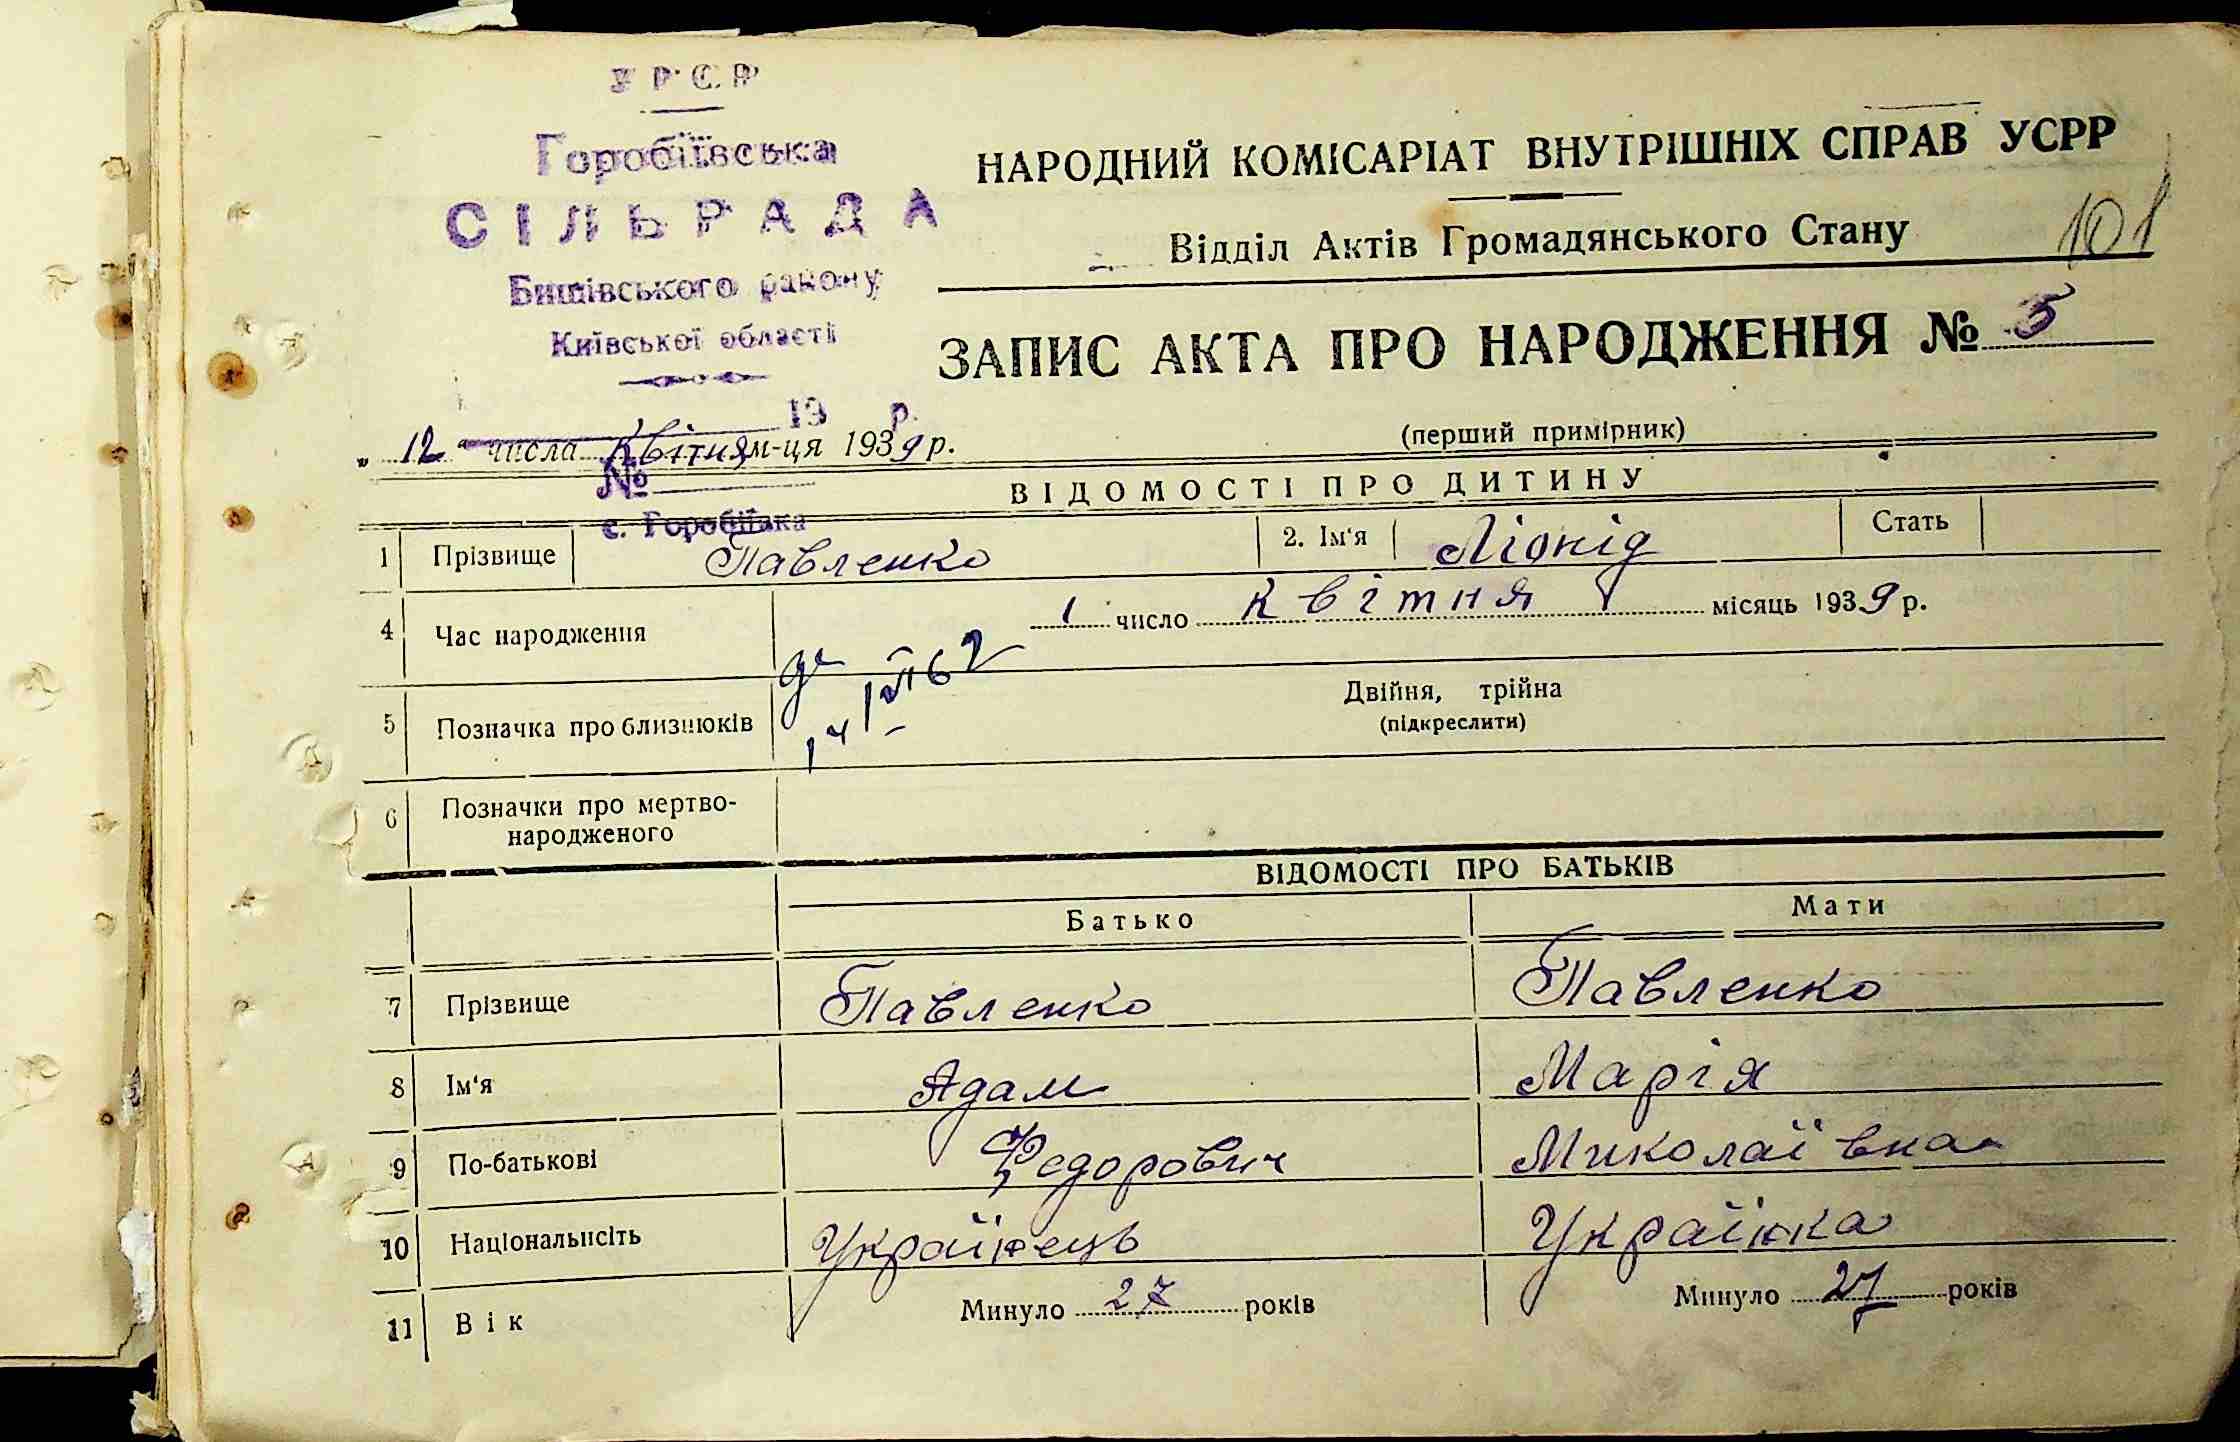 УРСР
Горобіївська
СІЛЬРАДА
Бишівського району
Київської області
19 р.
№
с. Горобіївка
НАРОДНИЙ КОМІСАРІАТ ВНУТРІШНІХ СПРАВ УСРР
Відділ Актів Громадянського Стану
101
ЗАПИС АКТА ПРО НАРОДЖЕННЯ № 5
(перший примірник)
„ 12 " числа Квітня м-ця 1939 р.
ВІДОМОСТІ ПРО ДИТИНУ
1 Прізвище Павленко 2. Ім'я Ліонід Стать
4 Час народження 1 число Квітня місяць 1939 р.
5 Позначка про близнюків Двійня, трійна
(підкреслити)
6 Позначки про мертво-
народженого
ВІДОМОСТІ ПРО БАТЬКІВ
Батько Мати
7 Прізвище Павленко Павленко
8 Ім'я Адам Марія
9 По-батькові Федорович Миколаївна
10 Національність Українець Українка
11 Вік Минуло 27 років Минуло 27 років